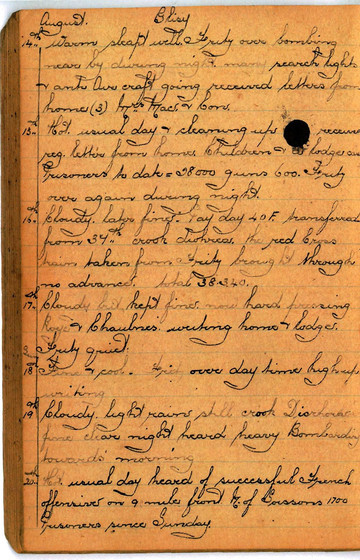 August. Blisy
14th Warm, slept well. Fritz over bombing
near by during night many search lights
& anti air craft going received letters from
home (3) Mrs Mac & Con.
15th Hot. usual day & cleaning up received
reg. letter from home Children & lodge
Prisoners to date = 28000 guns 600. Fritz
over again during night.
16th Cloudy, later fine. Pay day 40 F. transferred
from 37th crook the red Cross
train taken from Fritz brought through
no advance. total 38.340.
17th Cloudy but kept fine now hard pressing
Roye & Chaulnes. writing home & lodge.
Fritz quiet
18th Fine & cool. Fritz over day time high up
writing
19th Cloudy, light rains still crook Diarhoea
fine clear night heard heavy Bombarding
towards morning
20th Hot usual day heard of successful French
offensive on 9 mile front N. of Soissons 1700
Prisoners since Sunday